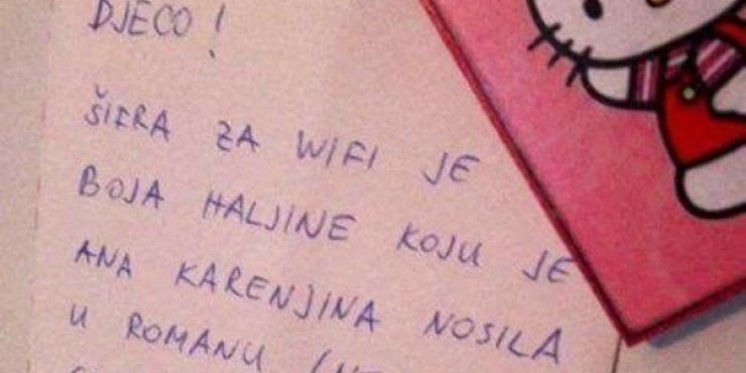 DJECO!
ŠIFRA ZA WIFI JE
BOJA HALJINE KOJU JE
ANA KARENJINA NOSILA
U ROMANU